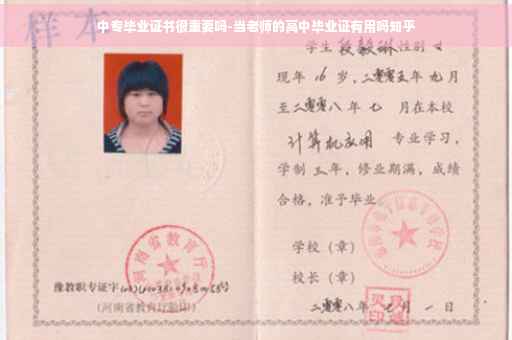 中专毕业证书很重要吗-当老师的高中毕业证有用吗知乎
样本
学生 段毅琳 性别 女
现年 16 岁,二零零五年 九月
至二零零八年 七 月在本校
计算机应用 专业学习,
学制 三 年,修业期满,成绩
合格,准予毕业
学校(章)
校长(章)
二零零八年 七 月 一 日
河南省教育厅
豫教职专证字
(河南省教育厅验印)